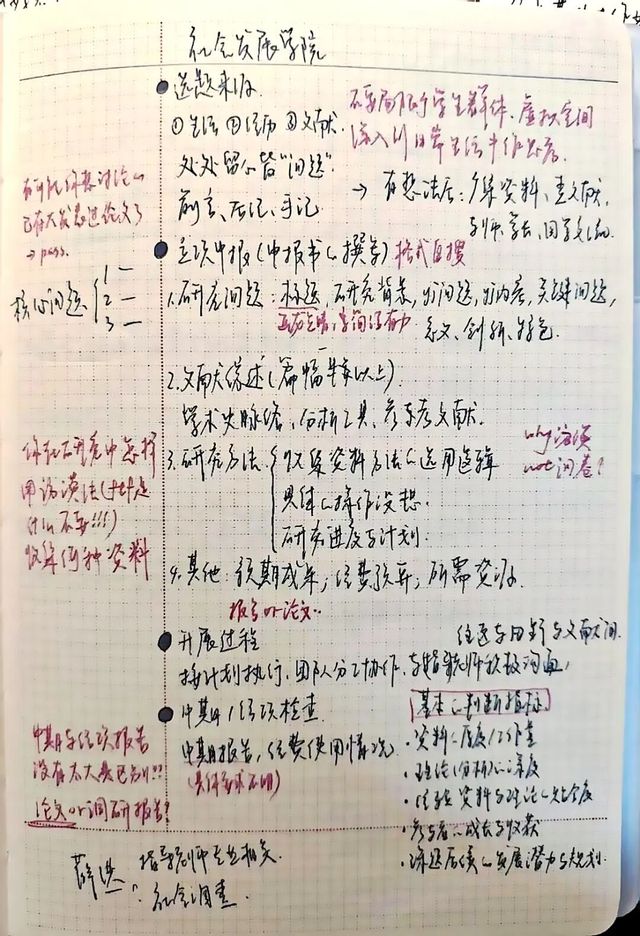 社会发展学院
● 选题来源
①生活 ②经历 ③文献.
处处留心皆"问题".
前言、后记、手记
不要局限于学生群体、虚拟空间
深入到日常生活中作思考.
→ 有想法后: 广集资料、查文献,
与师、学长、同学交流
有可能你想讨论的
已有大家思过论文了
→ pass.
● 立项申报(申报书的撰写) 格式自搜
核心问题 { 1 —
2 —
3 —
1. 研究问题: 标题, 研究背景, 问题, 内容, 关键问题,
意义、创新、特色
2. 文献综述(篇幅以上)
学术史脉络, 分析工具, 参考文献.
3. 研究方法. { 收集资料方法的选用逻辑
具体的操作设想.
研究进度与计划.
why 访谈
not 问卷?
你在研究中怎样
用访谈法(
什么不要!!!)
收集何种资料
4. 其他: 预期成果; 经费预算; 所需资源.
报告 or 论文..
● 开展过程
往返与田野与文献间.
按计划执行, 团队分工协作, 与指导师积极沟通,
● 中期/结项检查
中期报告, 经费使用情况
(具体要求不明)
中期与结项报告
没有太大差已别!!!
论文 or 调研报告?
基本的判断指标
· 资料的厚度/工作量
· 理论(分析)的深度
· 经验资料与理论的结合度
· 参与者的成长与收获
· 课题后续的发展潜力与规划.
薛洪: 指导师专业相关.
社会调查